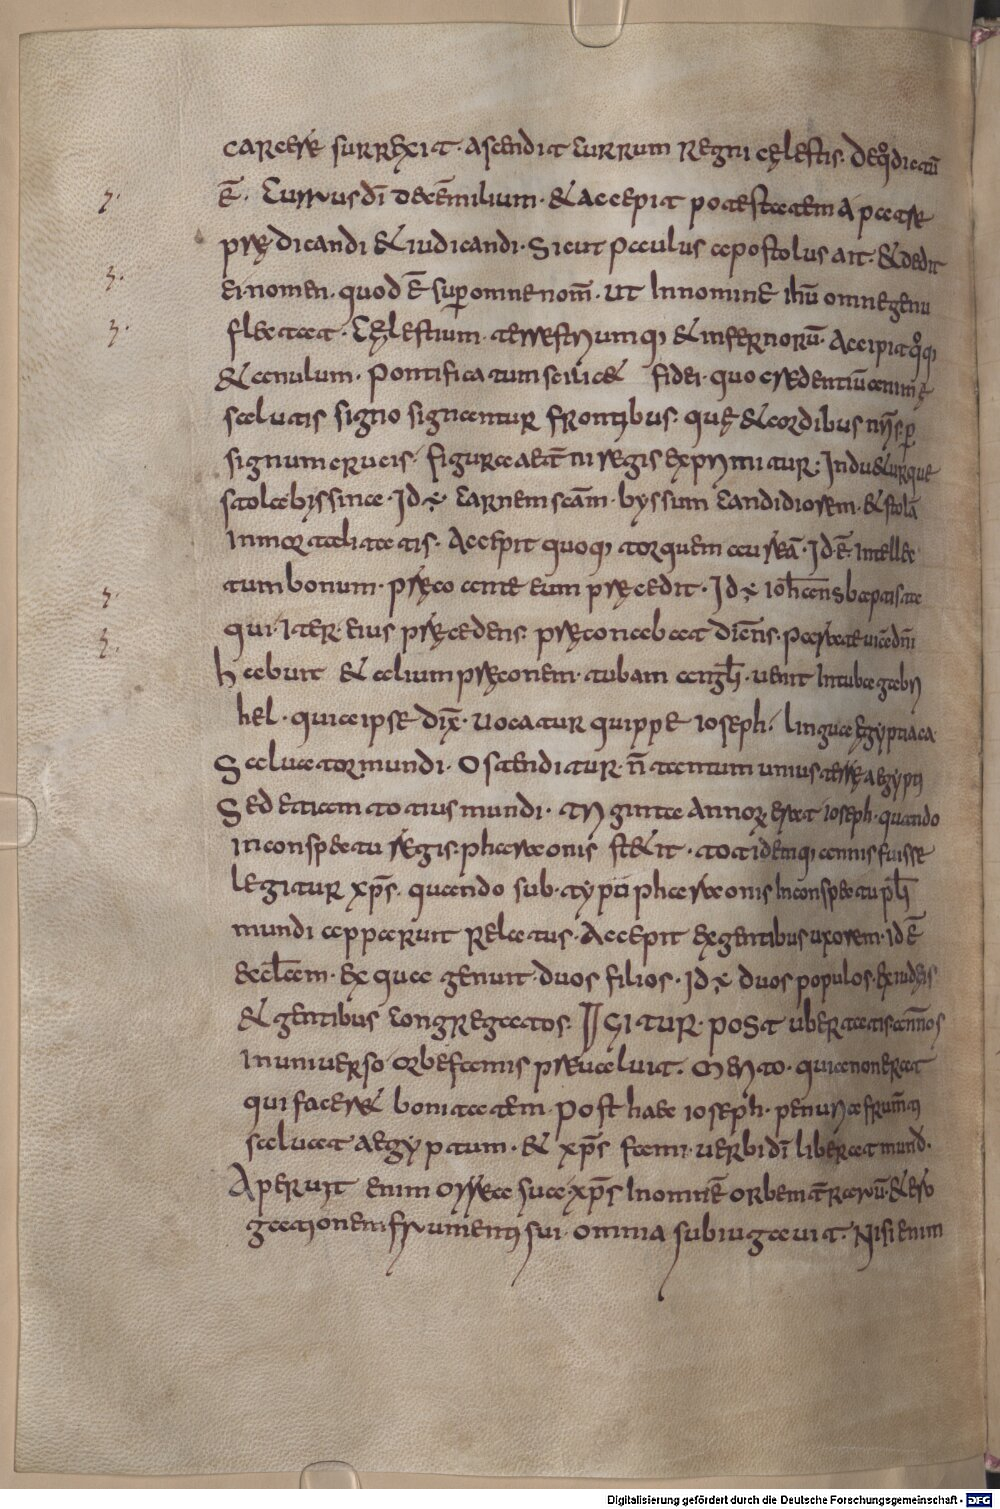 carcere surrexit. ascendit currum regni cęlestis. deq̊ dictū
ē. Currus dī decē milium. & accepit potestatem a patre
prędicandi & iudicandi. Sicut paulus apostolus ait. & dedit
ei nomen. quod ē sup omne nom̄. ut In nomine ihū omne genu
flectat. Cęlestium. terrestriumq; & infernorū. Accipit q̊q;
& anulum. Pontificatum scilic& fidei. quo credentiū animę
salutis signo signantur frontibus. quę & cordibus nr̄is p
signum crucis. figura aet̄ni regis exprimitur; Indu&urque
stola bissina. Id ÷ carnem scām. byssum candidiorem. & stolā
Inmortalitatis. Accepit quoq; torquem aureā. Id ē. Intellec
tum bonum. pręco ante eum pręcedit. Id ÷ ioh̄annes baptista
qui. Iter. eius pręcedens. pręconabat dicens. parate uiā dn̄i
habuit & alium pręconem. tubam angl̄i. uenit In tuba gabri
hel. quia ipse dix̄. Uocatur quippe ioseph. lingua ęgyptiaca
Saluator mundi. Ostenditur. n̄ tantum unius terrę aegypti
Sed etiam totius mundi. triginta annoꝝ erat ioseph. quando
in conspectu regis. pharaonis st&it. totidemq; annis fuisse
legitur xp̄s. quando sub. typo pharaonis In conspectu ppl̄i
mundi apparuit relatus. Accepit ex gentibus uxorem. id ē
eccl̄am. ex qua genuit. duos filios. Id ÷ duos populos. ex iudęis
& gentibus congregatos. Igitur. post ubertatis. annos
in uniuerso orbe famis preualuit. Merito. quia non erat
qui facer& bonitatem. Post haec ioseph. penuria frum̄ti
saluat aegyptum. & xp̄s fami. uerbi dī liberat mund.
Aperuit enim orrea sua. xp̄s In omnē orbem t̄rarū. & ero
gationem frumenti sui. omnia subiugauit. Nisi enim
Digitalisierung gefördert durch die Deutsche Forschungsgemeinschaft - DFG